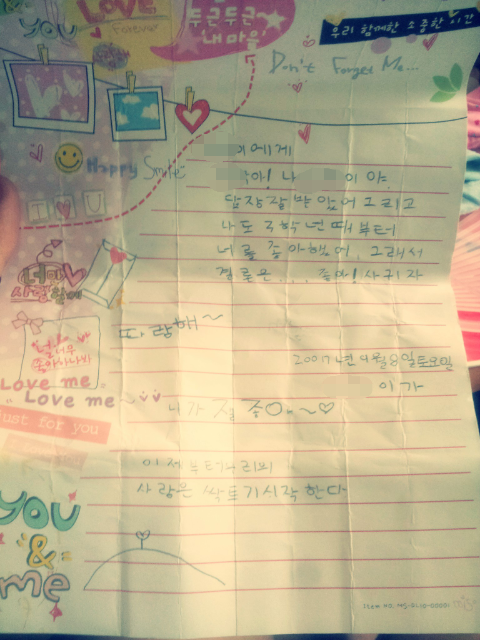 YOU
LOVE
Forever
두근두근
내 마음!
우리 함께한 소중한 시간
Don't Forget Me...
Happy Smile
I U
이에게
아! 나 이야.
답장잘받았어 그리고
나도 3학년때부터
너를 좋아했어. 그래서
결론은.... 좋아! 사귀자
사랑해
따랑해~
20017년 9월 8일토요일
이가
Love me
Love me~
니가 젤 좋아~♡
Just for you
이제부터우리의
사랑은 싹트기시작한다
YOU
&
me